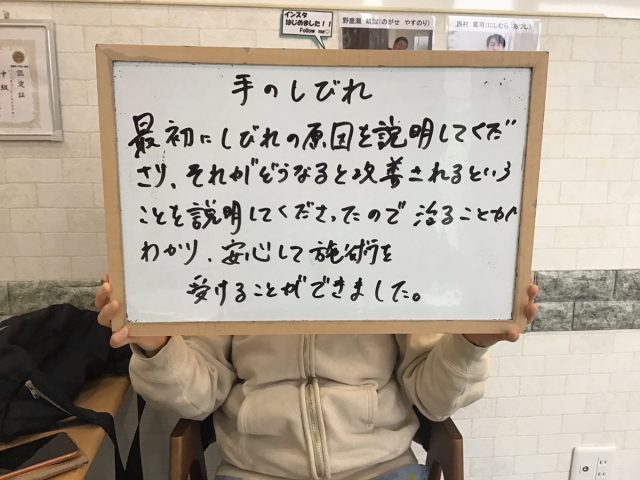 インスタ
はじめました!!
Follow me♡
認定証
中級
手のしびれ
最初にしびれの原因を説明してくだ
さり、それがどうなると改善されるという
ことを説明してくださったので治ることが
わかり、安心して施術を
受けることができました。